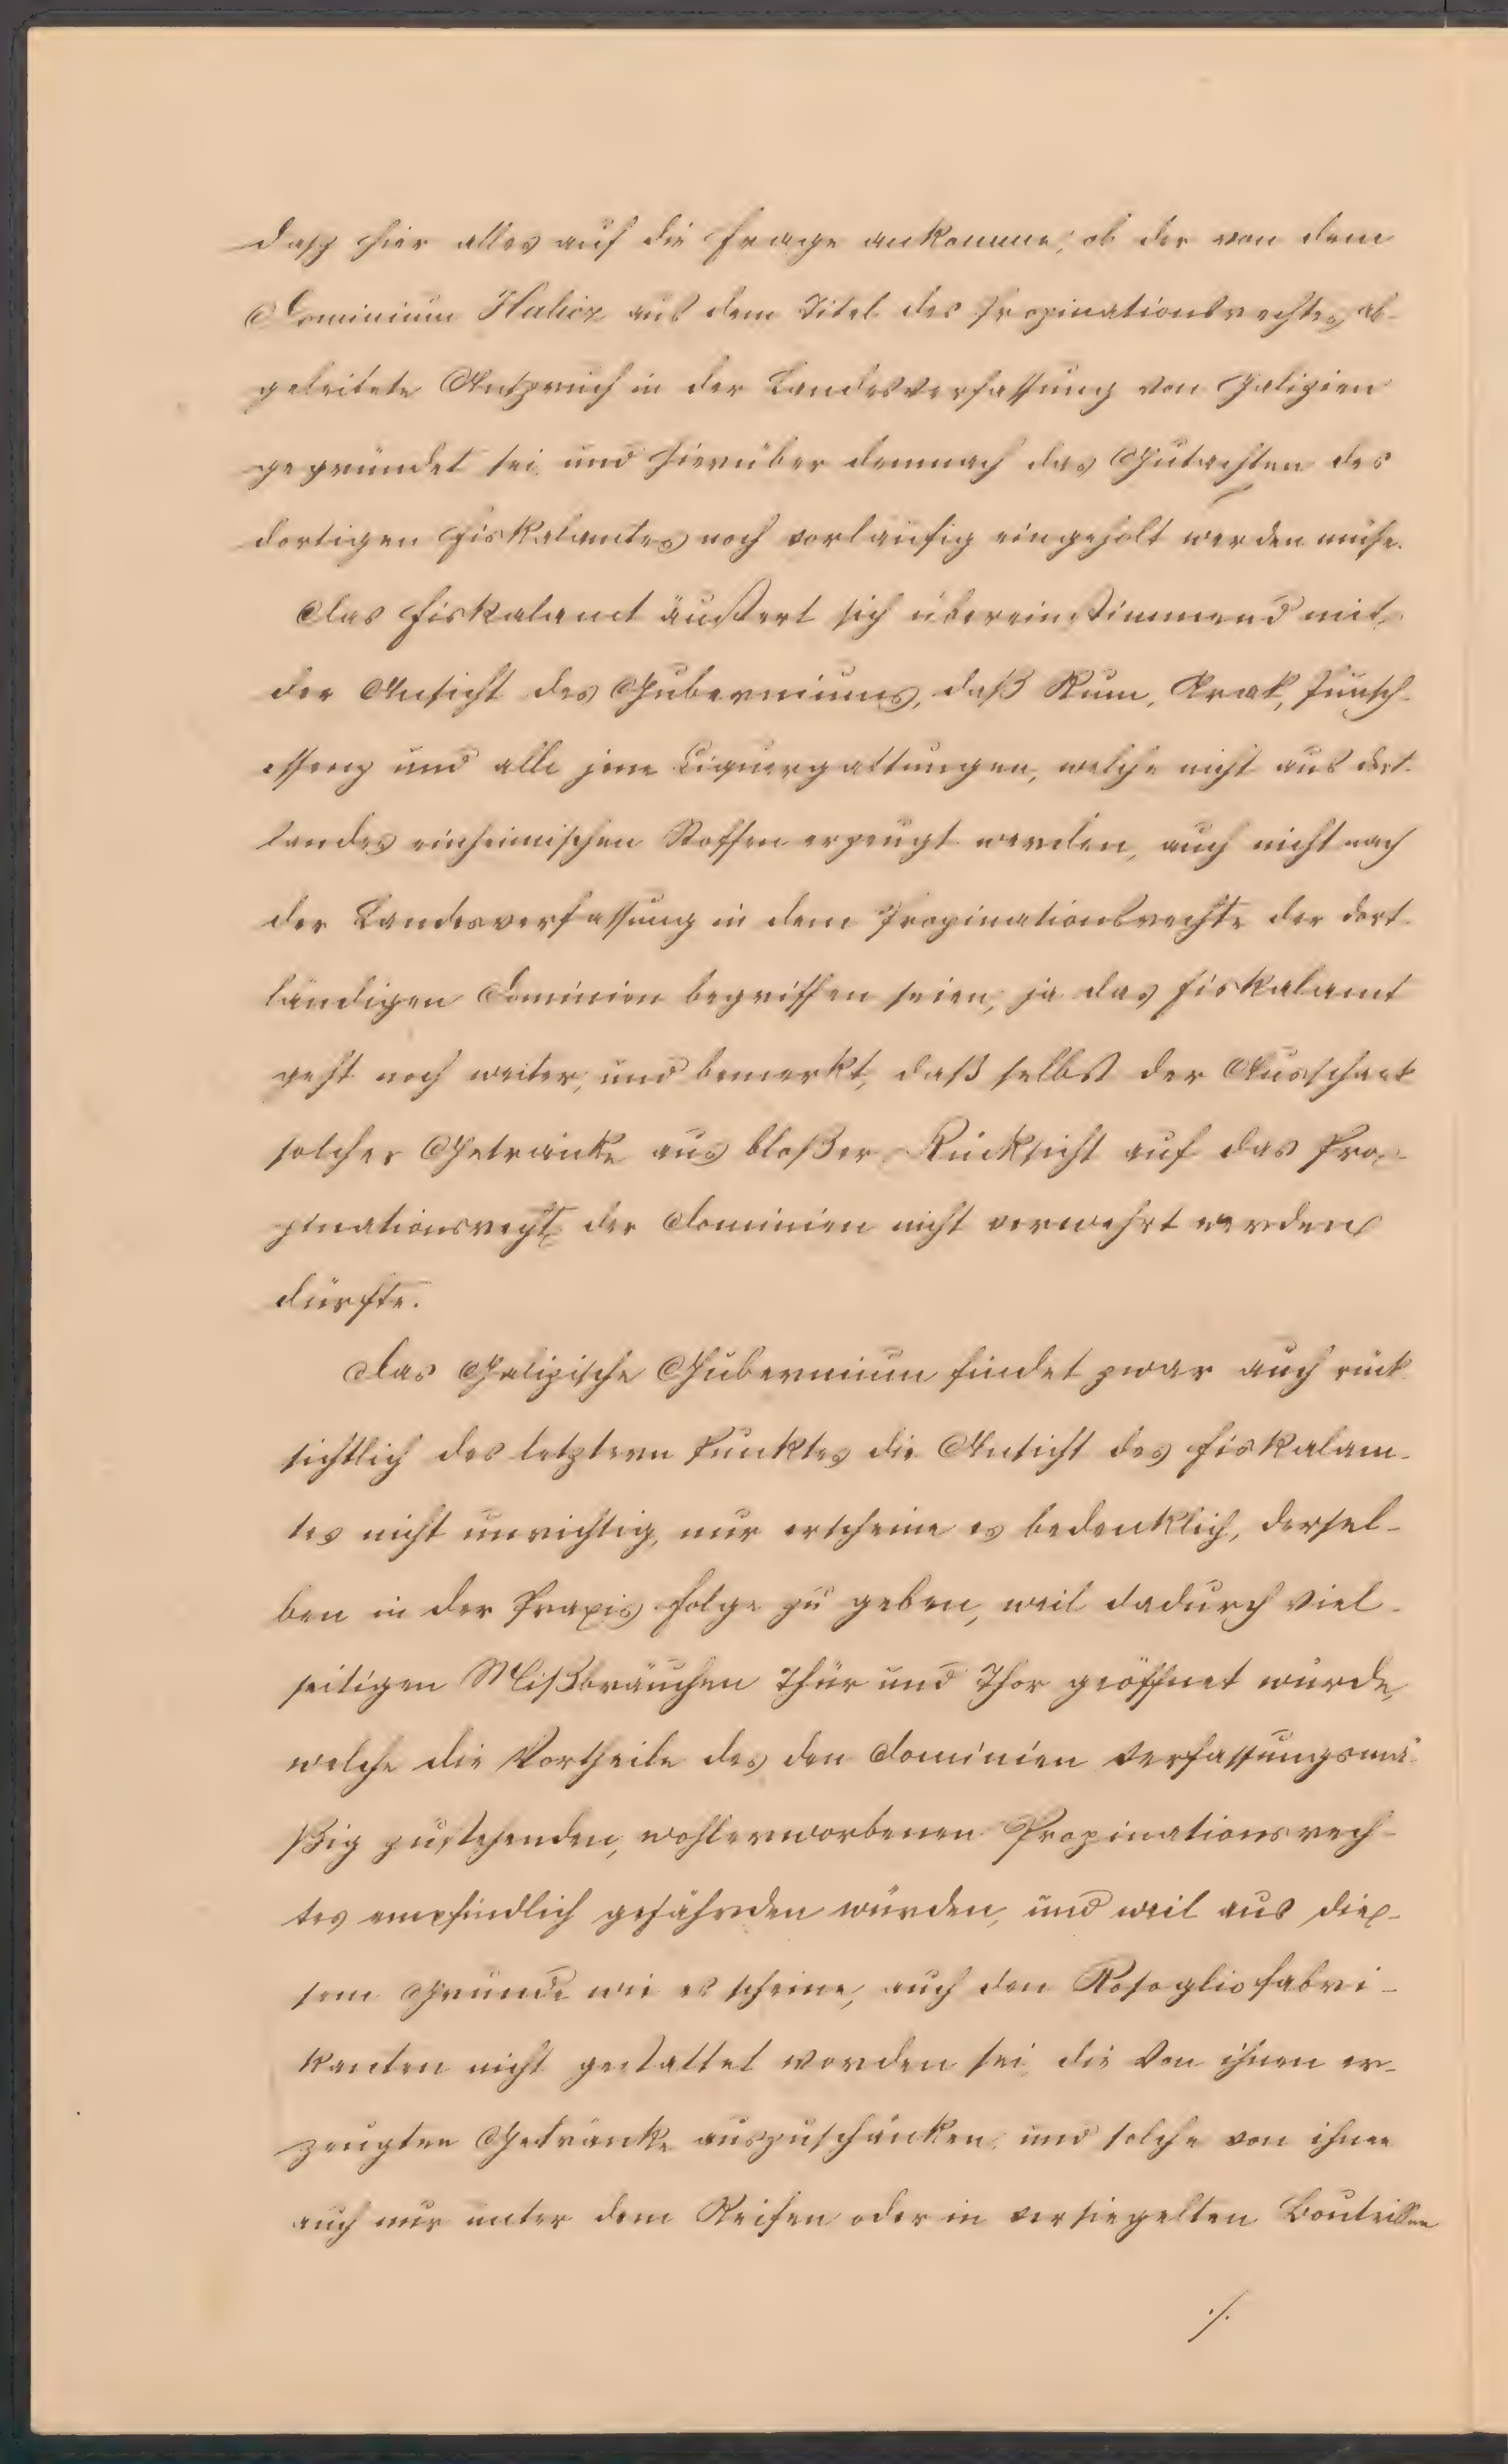 daß hier alles auf die Frage ankomme, ob der von dem
Dominium Halicz aus dem Titel des Propinationsrechtes ab-
geleitete Anspruch in der Landesverfassung von Galizien
gegründet sei und hierüber demnach das Gutachten des
dortigen Fiskalamtes noch vorläufig eingeholt werden müße.
Das Fiskalamt äußert sich übereinstimmend mit
der Ansicht des Guberniums, daß Rum, Arak, Punsch-
essenz und alle jene Liquergattungen, welche nicht aus dort-
landes einheimischen Stoffen erzeugt werden, auch nicht nach
der Landesverfassung in dem Propinationsrechte der dort-
ländigen Dominien begriffen seien, ja das Fiskalamt
geht noch weiter, und bemerkt, daß selbst der Ausschank
solcher Getränke aus bloßer Rücksicht auf das Pro-
pinationsrecht der Dominien nicht verwehrt werden
dürfte.
Das Galizische Gubernium findet zwar auch rück-
sichtlich des letztern Punktes die Ansicht des Fiskalam-
tes nicht unrichtig, nur erscheine es bedenklich, dersel-
ben in der Praxis Folge zu geben, weil dadurch viel-
seitigen Mißbräuchen Thür und Thor geöffnet würde,
welche die Vortheile des den Dominien verfassungsmä-
ßig zustehenden, wohlerworbenen Propinationsrech-
tes empfindlich gefährden würden, und weil aus die-
sem Grunde wie es scheine, auch den Rosogliofabri-
kanten nicht gestattet worden sei, die von ihnen er-
zeugten Getränke auszuschänken, und solche von ihnen
auch nur unter dem Reifen oder in versiegelten Bouteillen
./.